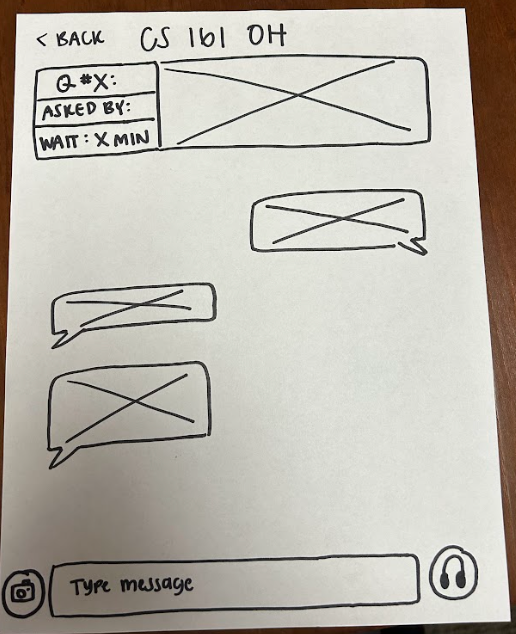 < BACK CS 161 OH
Q #X:
ASKED BY:
WAIT: X MIN
Type message